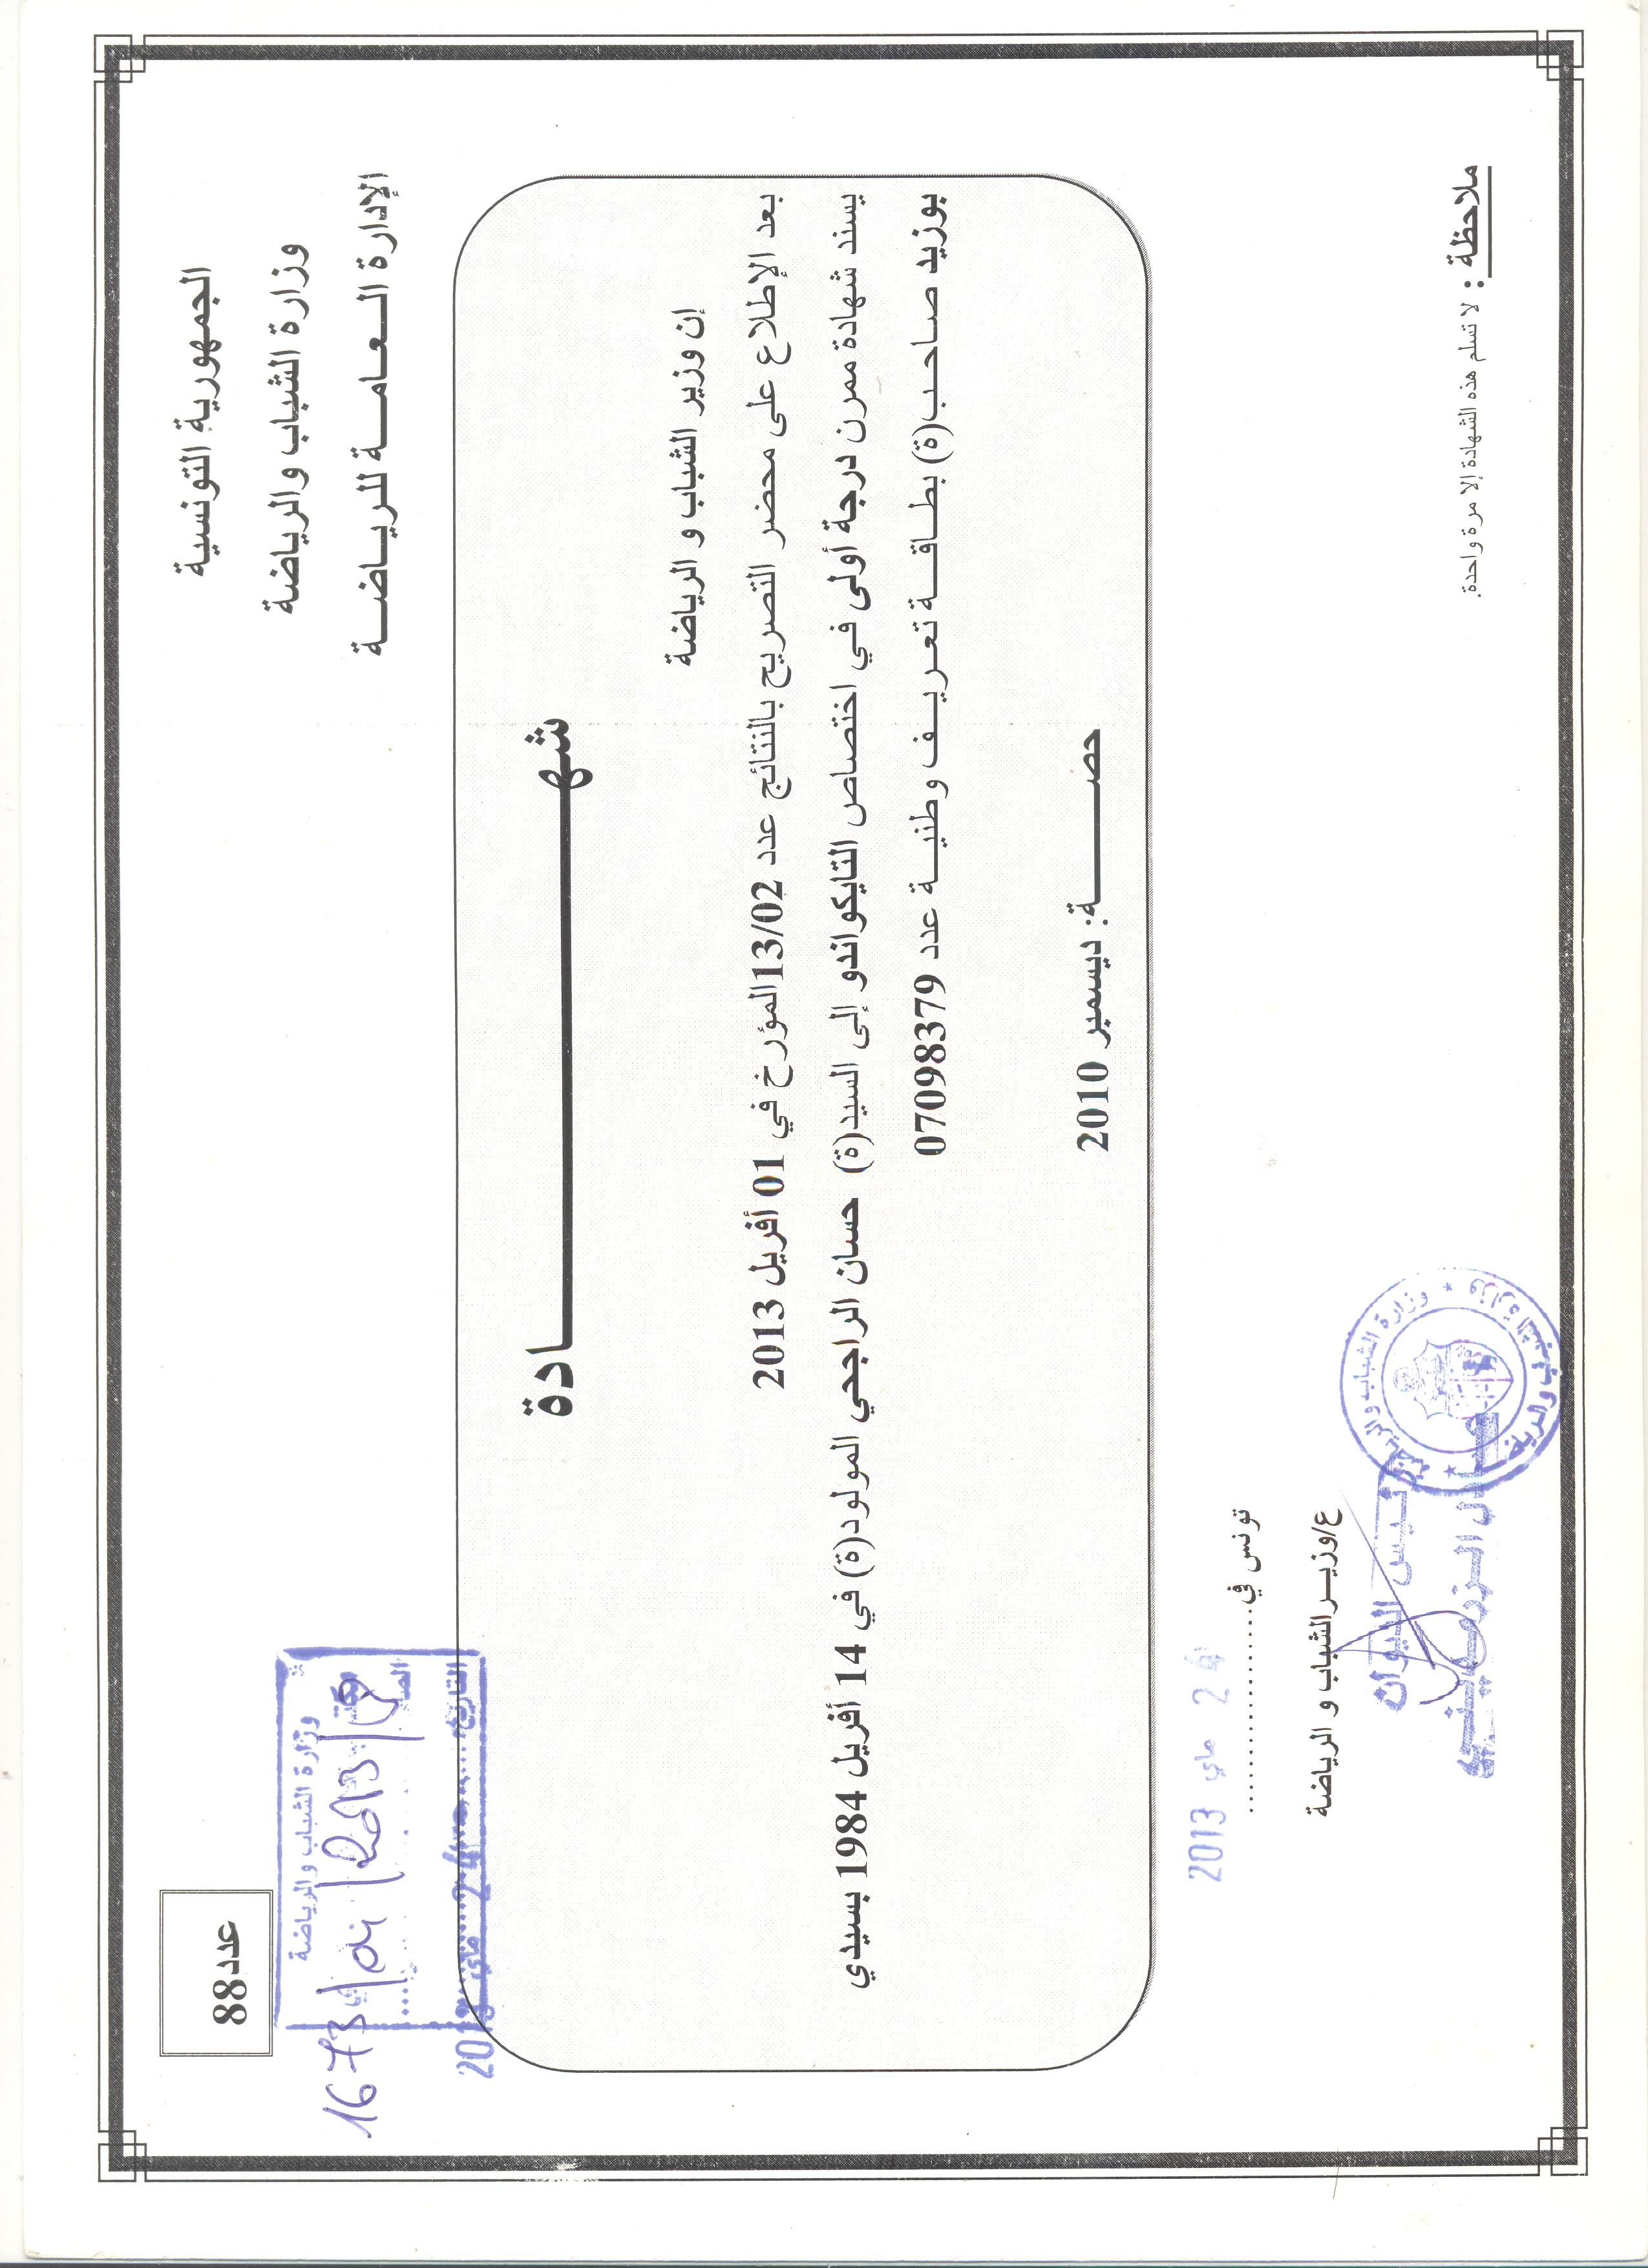 الجمهورية التونسية
وزارة الشباب والرياضة
الإدارة العامة للرياضة
عدد88
وزارة الشباب والرياضة
1673
2013
التاريخ
24 ماي 2013
شهادة
إن وزير الشباب و الرياضة
بعد الإطلاع على محضر التصريح بالنتائج عدد 13/02المؤرخ في 01 أفريل 2013
يسند شهادة ممرن درجة أولى في اختصاص التايكواندو إلى السيد(ة) حسان الراجحي المولود(ة) في 14 أفريل 1984 بسيدي
بوزيد صاحب(ة) بطاقة تعريف وطنية عدد 07098379
حصة: ديسمبر 2010
24 ماي 2013
تونس في
ع/وزير الشباب و الرياضة
رئيس الديوان
وزارة الشباب والرياضة
ملاحظة : لا تسلم هذه الشهادة إلا مرة واحدة.